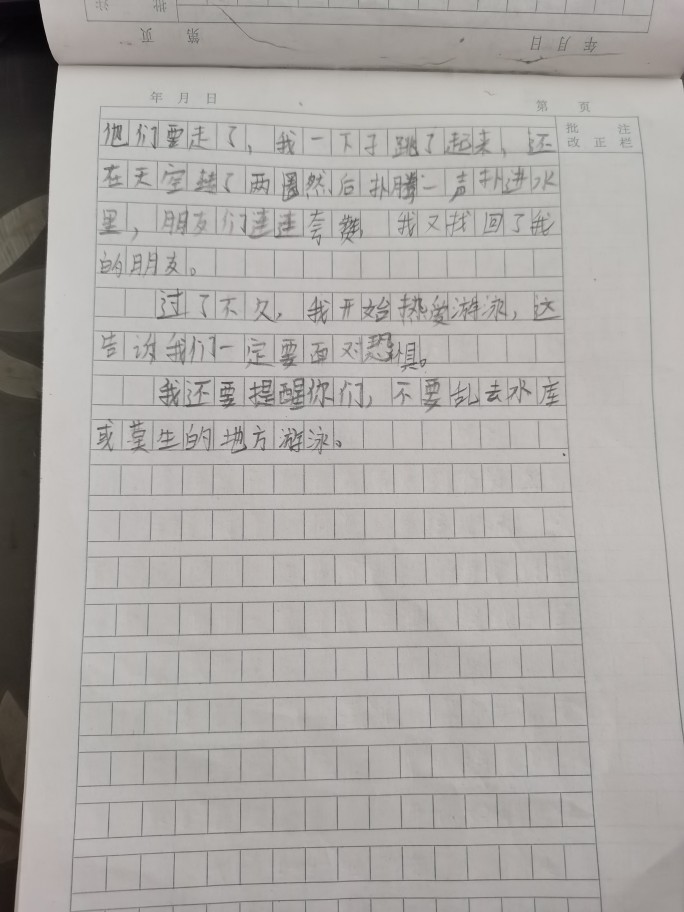 批 注
第 页
年 月 日
年 月 日
第 页
批 注
改 正 栏
他们要走了，我一下子跳了起来，还
在天空转了两圈然后扑腾一声扑进水
里，朋友们连连夸赞，我又找回了我
的朋友。
过了不久，我开始热爱游泳，这
告诉我们一定要面对恐惧。
我还要提醒你们，不要乱去水库
或莫生的地方游泳。